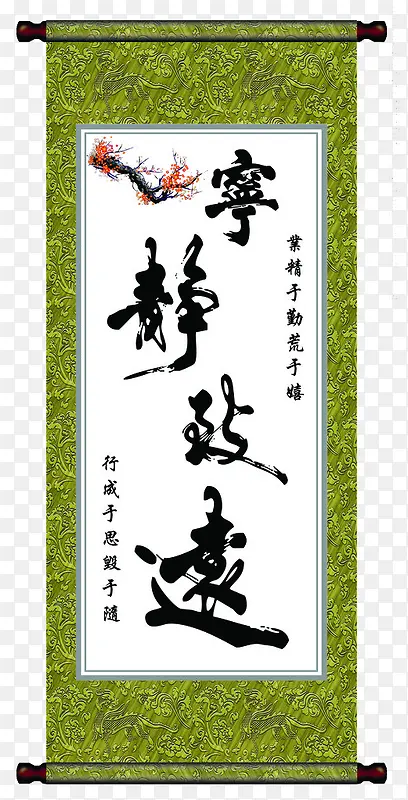 寧靜致遠
業精于勤荒于嬉
行成于思毀于隨